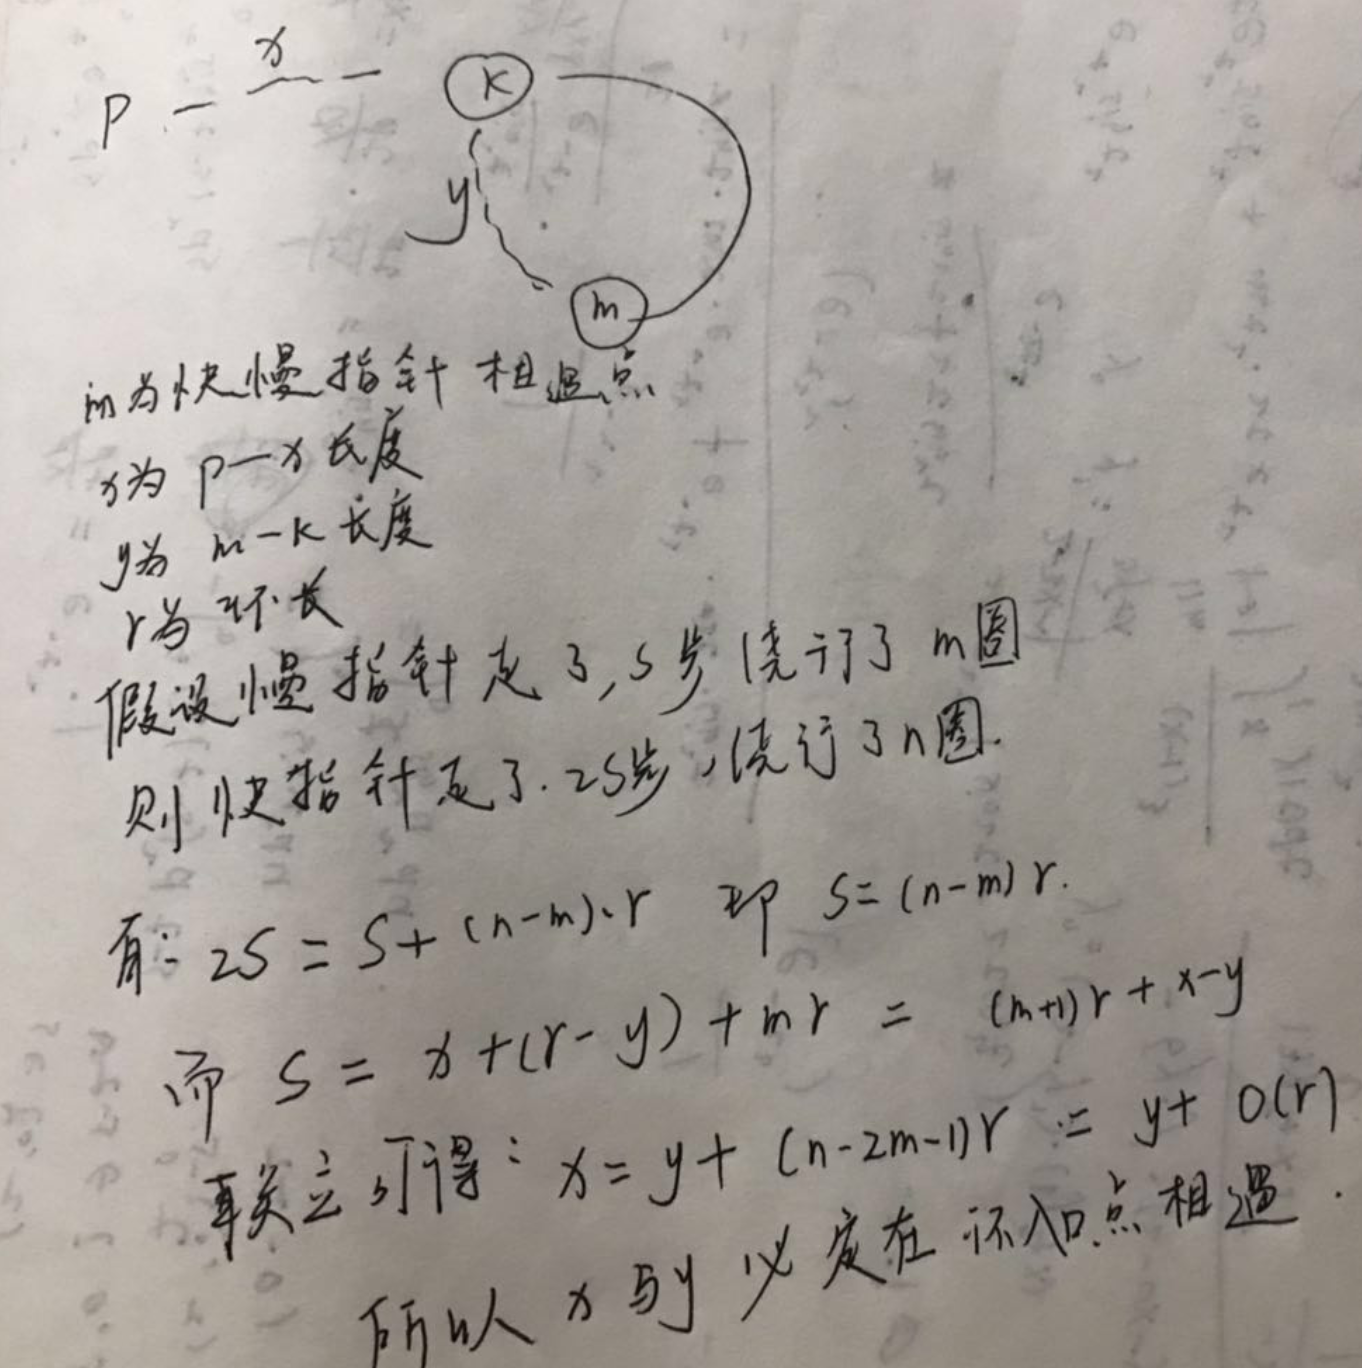 x
P
K
y
m
m为快慢指针相遇点
x为 p—x长度
y为 m—k长度
r为环长
假设慢指针走了,s步绕行了m圈
则快指针走了.2s步,绕行了n圈.
有: 2S = S+(n-m)·r 即 S=(n-m)r.
而 S = x+(r-y)+mr = (m+1)r+x-y
联立可得: x=y+(n-2m-1)r = y+O(r)
所以x与y必定在环入口点相遇.